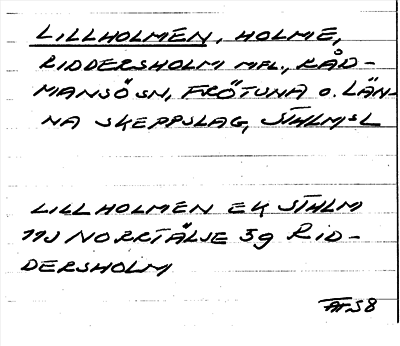 LILLHOLMEN, HOLME,
RIDDERSHOLM MFL., RÅD-
MANSÖ SN, FRÖTUNA O. LÄN-
NA SKEPPSLAG, STHLMS L
LILLHOLMEN EK STHLM
11J NORRTÄLJE 5g RID-
DERSHOLM